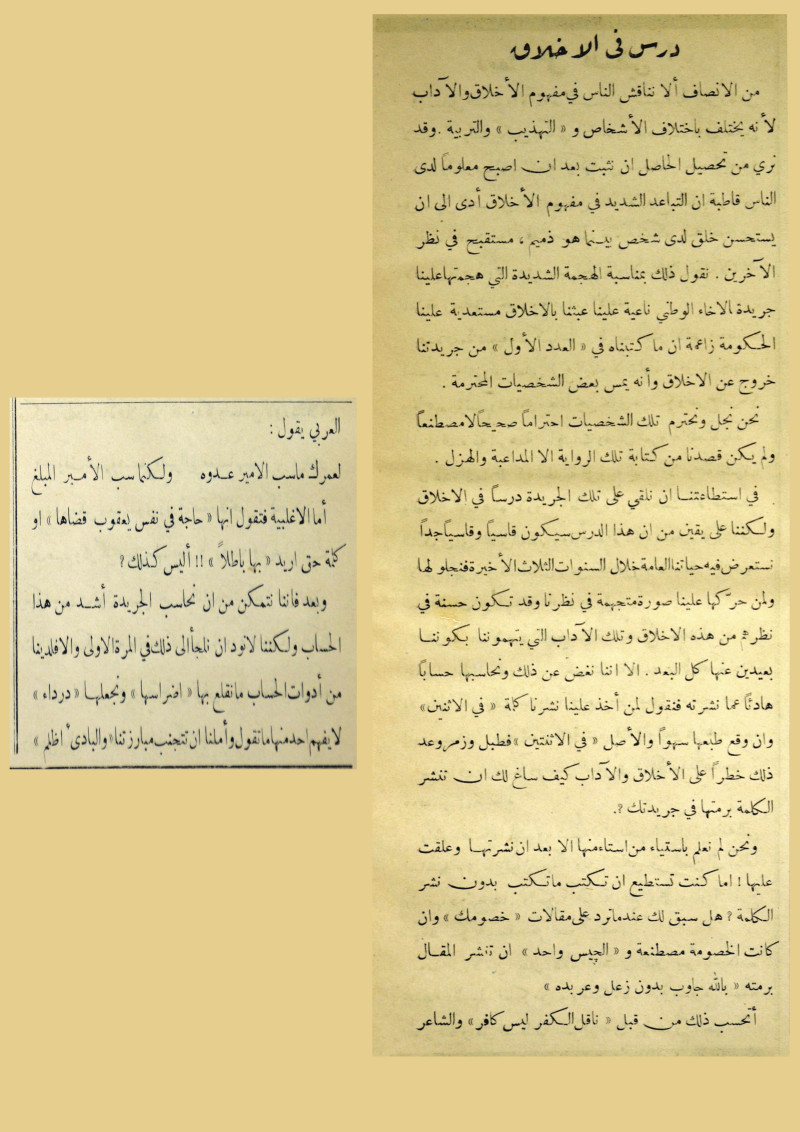 درس في الاخلاق
من الانصاف ألا نناقش الناس في مفهوم الأخلاق والآداب
لأنه يختلف باختلاف الأشخاص و « التهذيب » والتربية . وقد
نري من تحصيل الحاصل ان نثبت بعد ان اصبح معلوماً لدى
الناس قاطبة ان التباعد الشديد في مفهوم الأخلاق أدى الى ان
يستحسن خلق لدى شخص بينما هو ذميم ، مستقبح في نظر
الآخرين . نقول ذلك بمناسبة الهجمة الشديدة التي هجمتها علينا
جريدة الاخاء الوطني ناعية علينا عبثنا بالاخلاق مستعدية علينا
الحكومة زاعمة ان ما كتبناه في « العدد الأول » من جريدتنا
خروج عن الاخلاق وأنه يمس بعض الشخصيات المحترمة .
نحن نجل ونحترم تلك الشخصيات احتراماً صحيحاً لا مصطنعاً
ولم يكن قصدنا من كتابة تلك الرواية الا المداعبة والهزل .
في استطاعتنا ان نلقي على تلك الجريدة درساً في الاخلاق
ولكننا على يقين من ان هذا الدرس سيكون قاسياً وقاسياً جداً
نستعرض فيه حياتنا العامة خلال السنوات الثلاث الأخيرة فنجلو لها
ولمن حركها علينا صورة متجهمة في نظرنا وقد تكون حسنة في
نظرهم من هذه الاخلاق وتلك الآداب التي يتهموننا بكوننا
بعيدين عنها كل البعد . الا اننا نغض عن ذلك ونحاسبها حساباً
هادئاً عما نشرته فنقول لمن أخذ علينا نشرنا كلمة « في الاثنين »
وان وقع طبعها سهواً والأصل « في الاثنتين » فطبل وزمر وعد
ذلك خطراً على الأخلاق والآداب كيف ساغ لك ان تنشر
الكلمة برمتها في جريدتك ؟.
ونحن لم نعلم باستياء من استاء منها الا بعد ان نشرتها وعلقت
عليها ! اما كنت تستطيع ان تكتب ما تكتب بدون نشر
الكلمة ? هل سبق لك عندما ترد على مقالات « خصومك » وان
كانت الخصومة مصطنعة و « الجيس واحد » ان تنشر المقال
برمته « بالله جاوب بدون زعل وعربده »
أتحسب ذلك من قبل « ناقل الكفر ليس كافر » والشاعر
العربي يقول :
لعمرك ماسب الامير عدوه ولكنما سب الأمير المبلغ
أما الاغلبية فتقول انها « حاجة في نفس يعقوب قضاها » او
كلمة حق اريد « بها باطلاً » !! أليس كذلك ?
وبعد فاننا نتمكن من ان نحاسب الجريدة أشد من هذا
الحساب ولكننا لا نود ان نلجأ الى ذلك في المرة الاولى والا فلدينا
من أدوات الحساب ما نقلع بها « اضراسها » ونجعلها « درداء »
لا يفهم احد منها ما تقول وأملنا ان تتجنب مبارزتنا « والبادي أظلم »